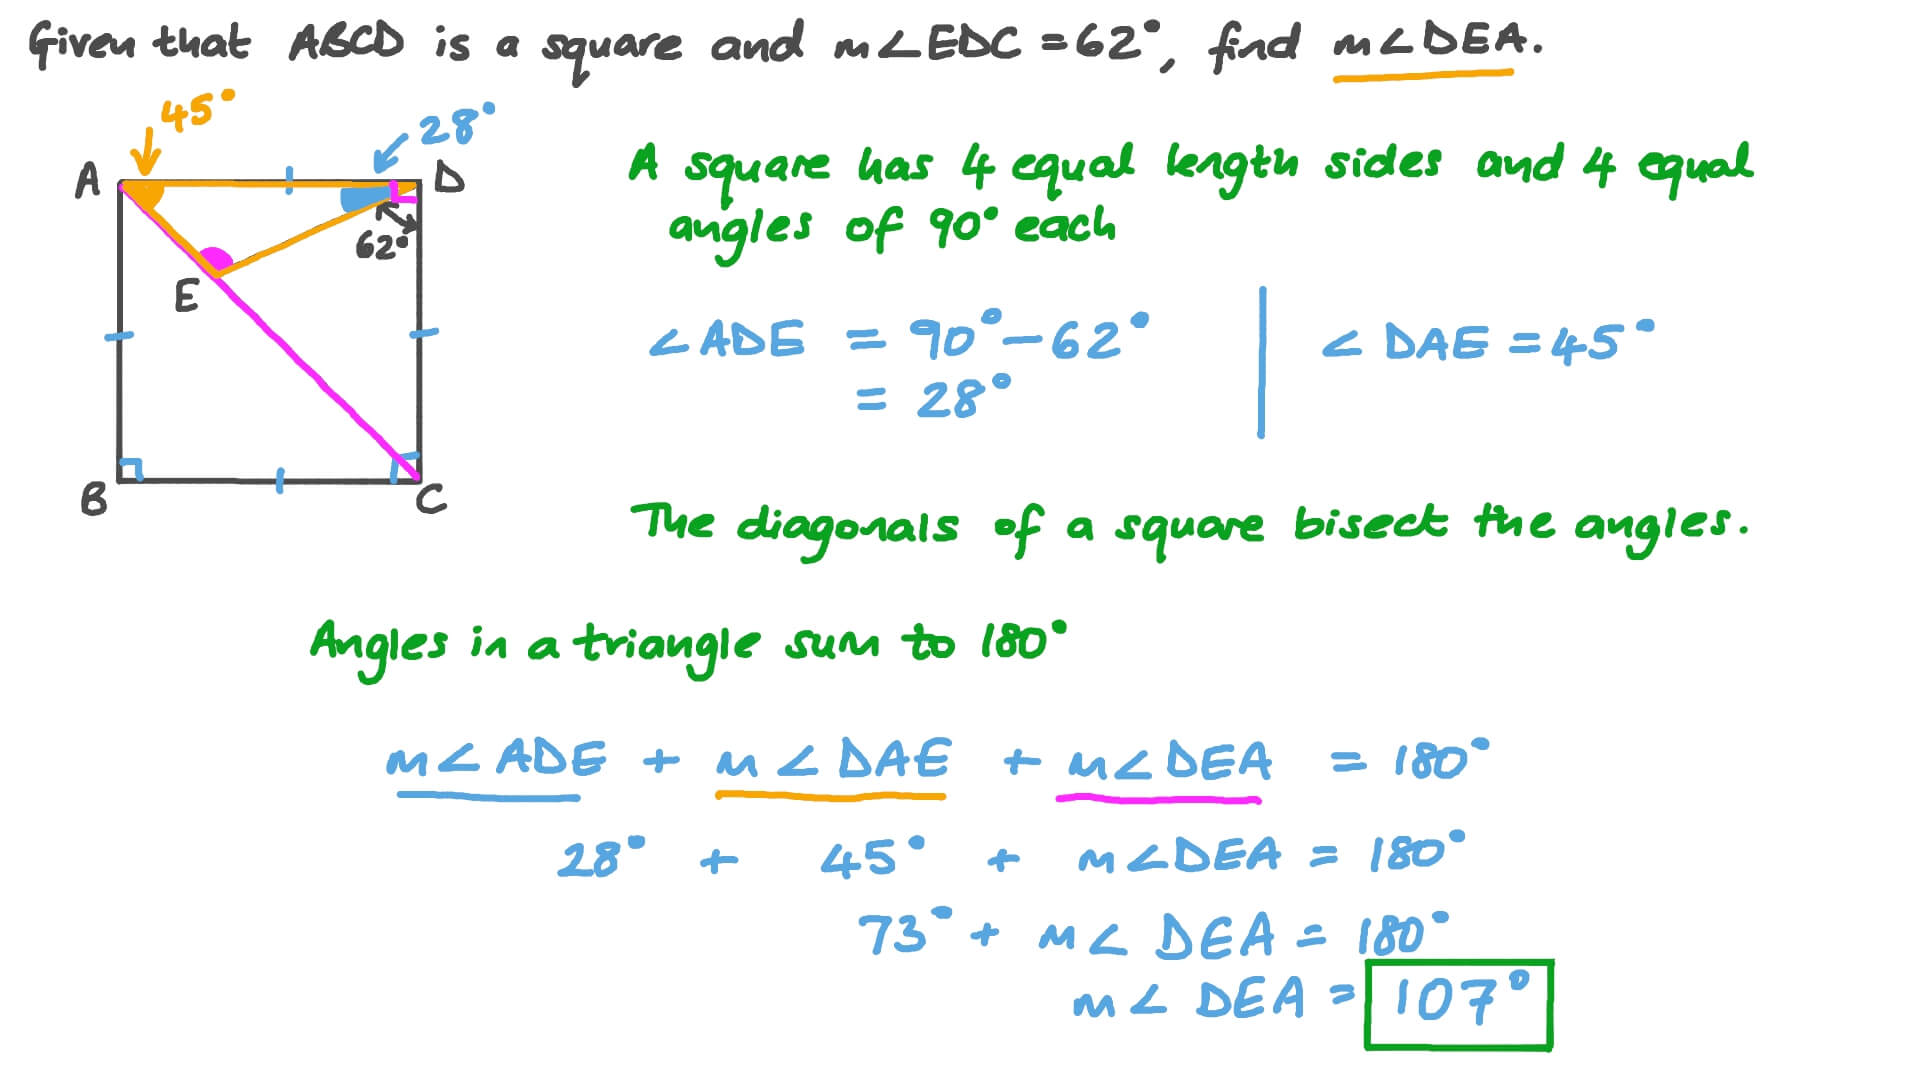 Given that ABCD is a square and m∠EDC = 62°, find m∠DEA.
45°
28°
A
D
62°
E
B
C
A square has 4 equal length sides and 4 equal
angles of 90° each
∠ADE = 90° - 62°
= 28°
∠DAE = 45°
The diagonals of a square bisect the angles.
Angles in a triangle sum to 180°
m∠ADE + m∠DAE + m∠DEA = 180°
28° + 45° + m∠DEA = 180°
73° + m∠DEA = 180°
m∠DEA = 107°